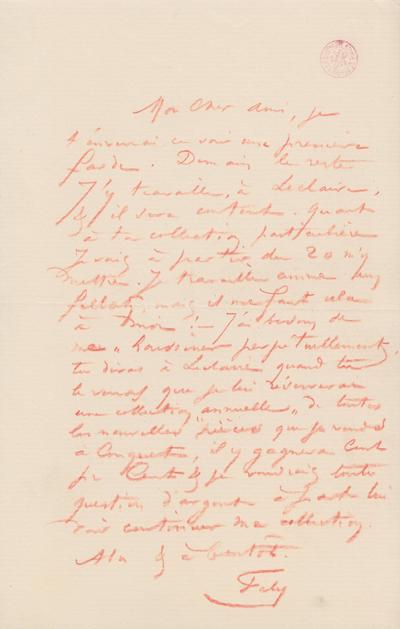 Mon Cher Ami, je
t'enverrai ce soir une première
farde. Demain le reste
J'y travaille, à Leclaire,
& il sera content. Quant
à ta collection particulière
J'vais à partir du 20 m'y
mettre. Je travaille comme un
, mais il me faut cela
à moi! — J'ai besoin de
me perpétuellement,
tu diras à Leclaire quand tu
le verras que je lui réserverai
une collection "annuelle" de toutes
les nouvelles pièces que je vends
à Conquet, il y gagnera Cent
pr Cent & je voudrais toute
question d'argent à part lui
voir continuer ma collection.
A toi & à bientôt.
Fély